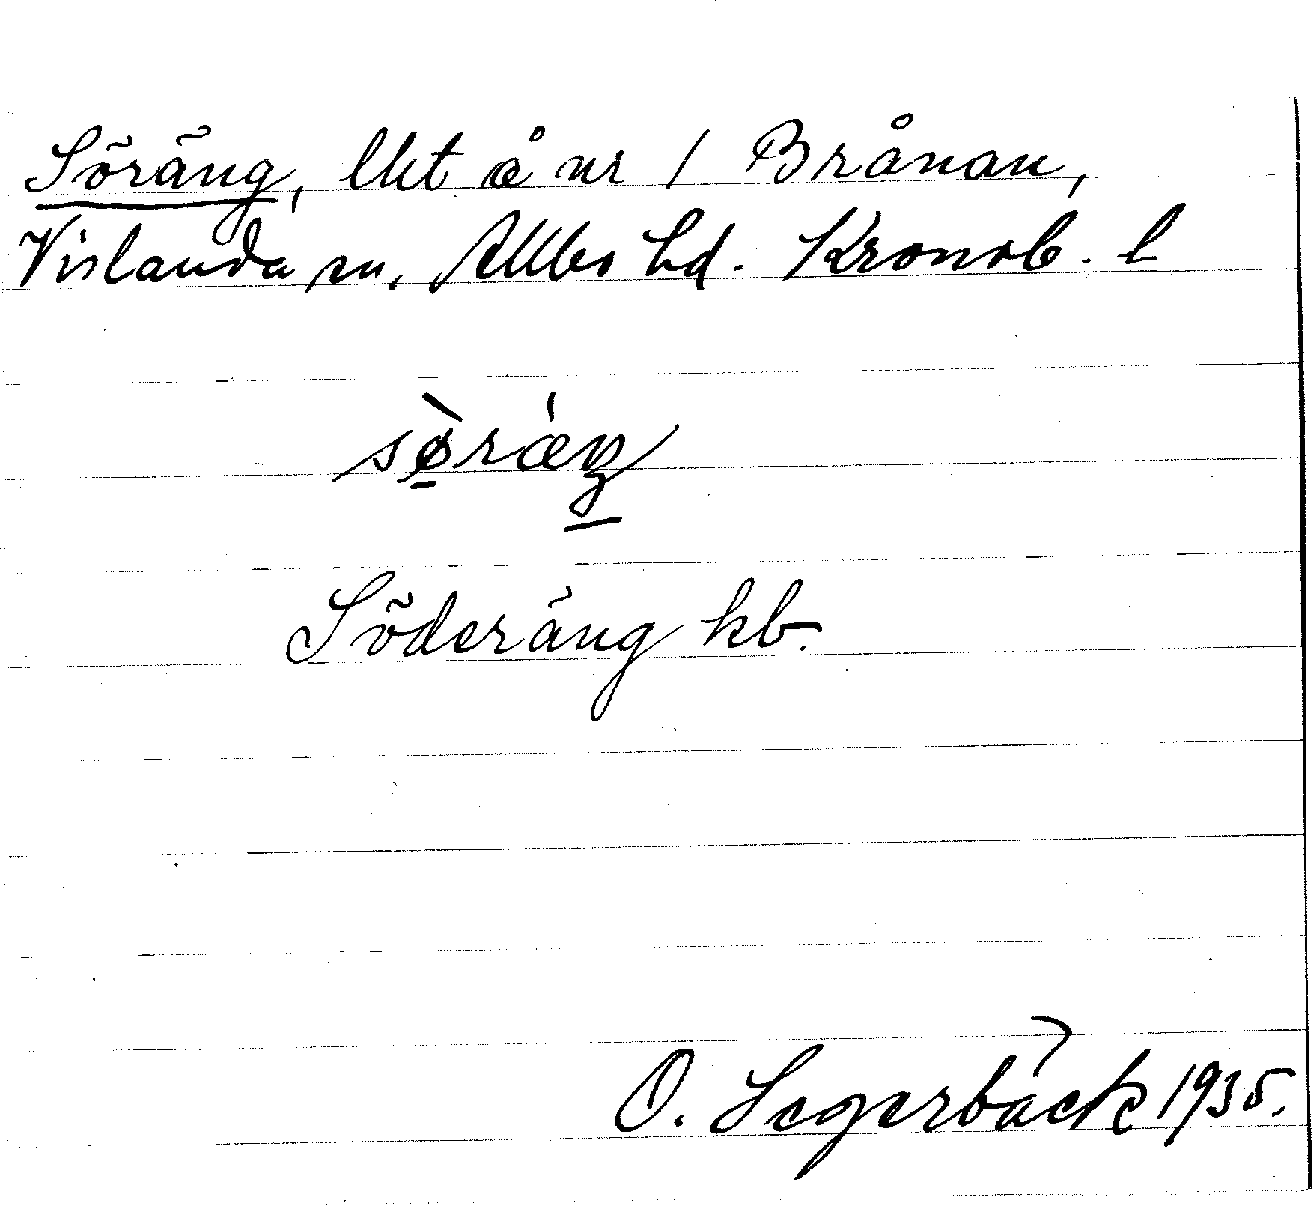 Söräng, lht å nr 1 Brånan,
Vislanda sn, Allbo hd. Kronob. l
sø̀ràŋ
Söderäng kb.
O. Segerbäck 1935.